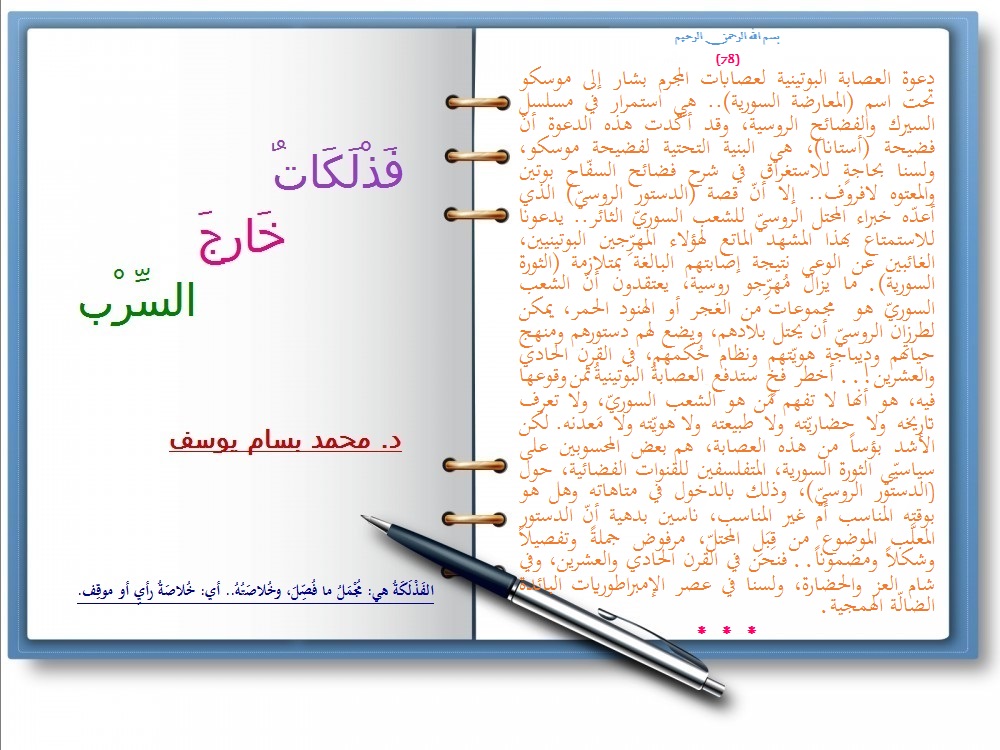 بسم الله الرحمن الرحيم
(78)
دعوة العصابة البوتينية لعصابات المجرم بشار إلى موسكو
تحت اسم (المعارضة السورية).. هي استمرار في مسلسل
السيرك والفضائح الروسية، وقد أكّدت هذه الدعوة أنّ
فضيحة (أستانا)، هي البنية التحتية لفضيحة موسكو،
ولسنا بحاجةٍ للاستغراق في شرح فضائح السفّاح بوتين
والمعتوه لافروف.. إلا أنّ قصة (الدستور الروسيّ) الذي
أعدّه خبراء المحتل الروسيّ للشعب السوريّ الثائر.. يدعونا
للاستمتاع بهذا المشهد الماتع لهؤلاء المهرّجين البوتينيين،
الغائبين عن الوعي نتيجة إصابتهم البالغة بمتلازمة (الثورة
السورية). ما يزال مُهرّجو روسية، يعتقدون أنّ الشعب
السوريّ هو مجموعات من الغجر أو الهنود الحمر، يمكن
لطرزان الروسيّ أن يحتل بلادهم، ويضع لهم دستورهم ومنهج
حياتهم وديباجة هويّتهم ونظام حُكمهم، في القرن الحادي
والعشرين!.. أخطر فخٍ ستدفع العصابةُ البوتينيةُ ثمن وقوعها
فيه، هو أنها لا تفهم مَن هو الشعب السوريّ، ولا تعرف
تاريخه ولا حضاريّته ولا طبيعته ولا هويّته ولا مَعدنه. لكن
الأشد بؤساً من هذه العصابة، هم بعض المحسوبين على
سياسيّي الثورة السورية، المتفلسفين للقنوات الفضائية، حول
(الدستور الروسيّ)، وذلك بالدخول في متاهاته وهل هو
بوقته المناسب أم غير المناسب، ناسين بدهية أنّ الدستور
المعلَّب الموضوع من قِبَلِ المحتلّ، مرفوض جملةً وتفصيلاً
وشكلاً ومضموناً.. فنحن في القرن الحادي والعشرين، وفي
شام العز والحضارة، ولسنا في عصر الإمبراطوريات البائدة
الضالّة الهمجية.
* * *
فَذْلَكَاتٌ
خَارجَ
السِّرْب
د. محمد بسام يوسف
الفَذْلَكَةُ هي: مُجْمَلُ ما فُصِّلَ، وخُلاصَتُهُ.. أي: خُلاصَةُ رأيٍ أو موقِف.